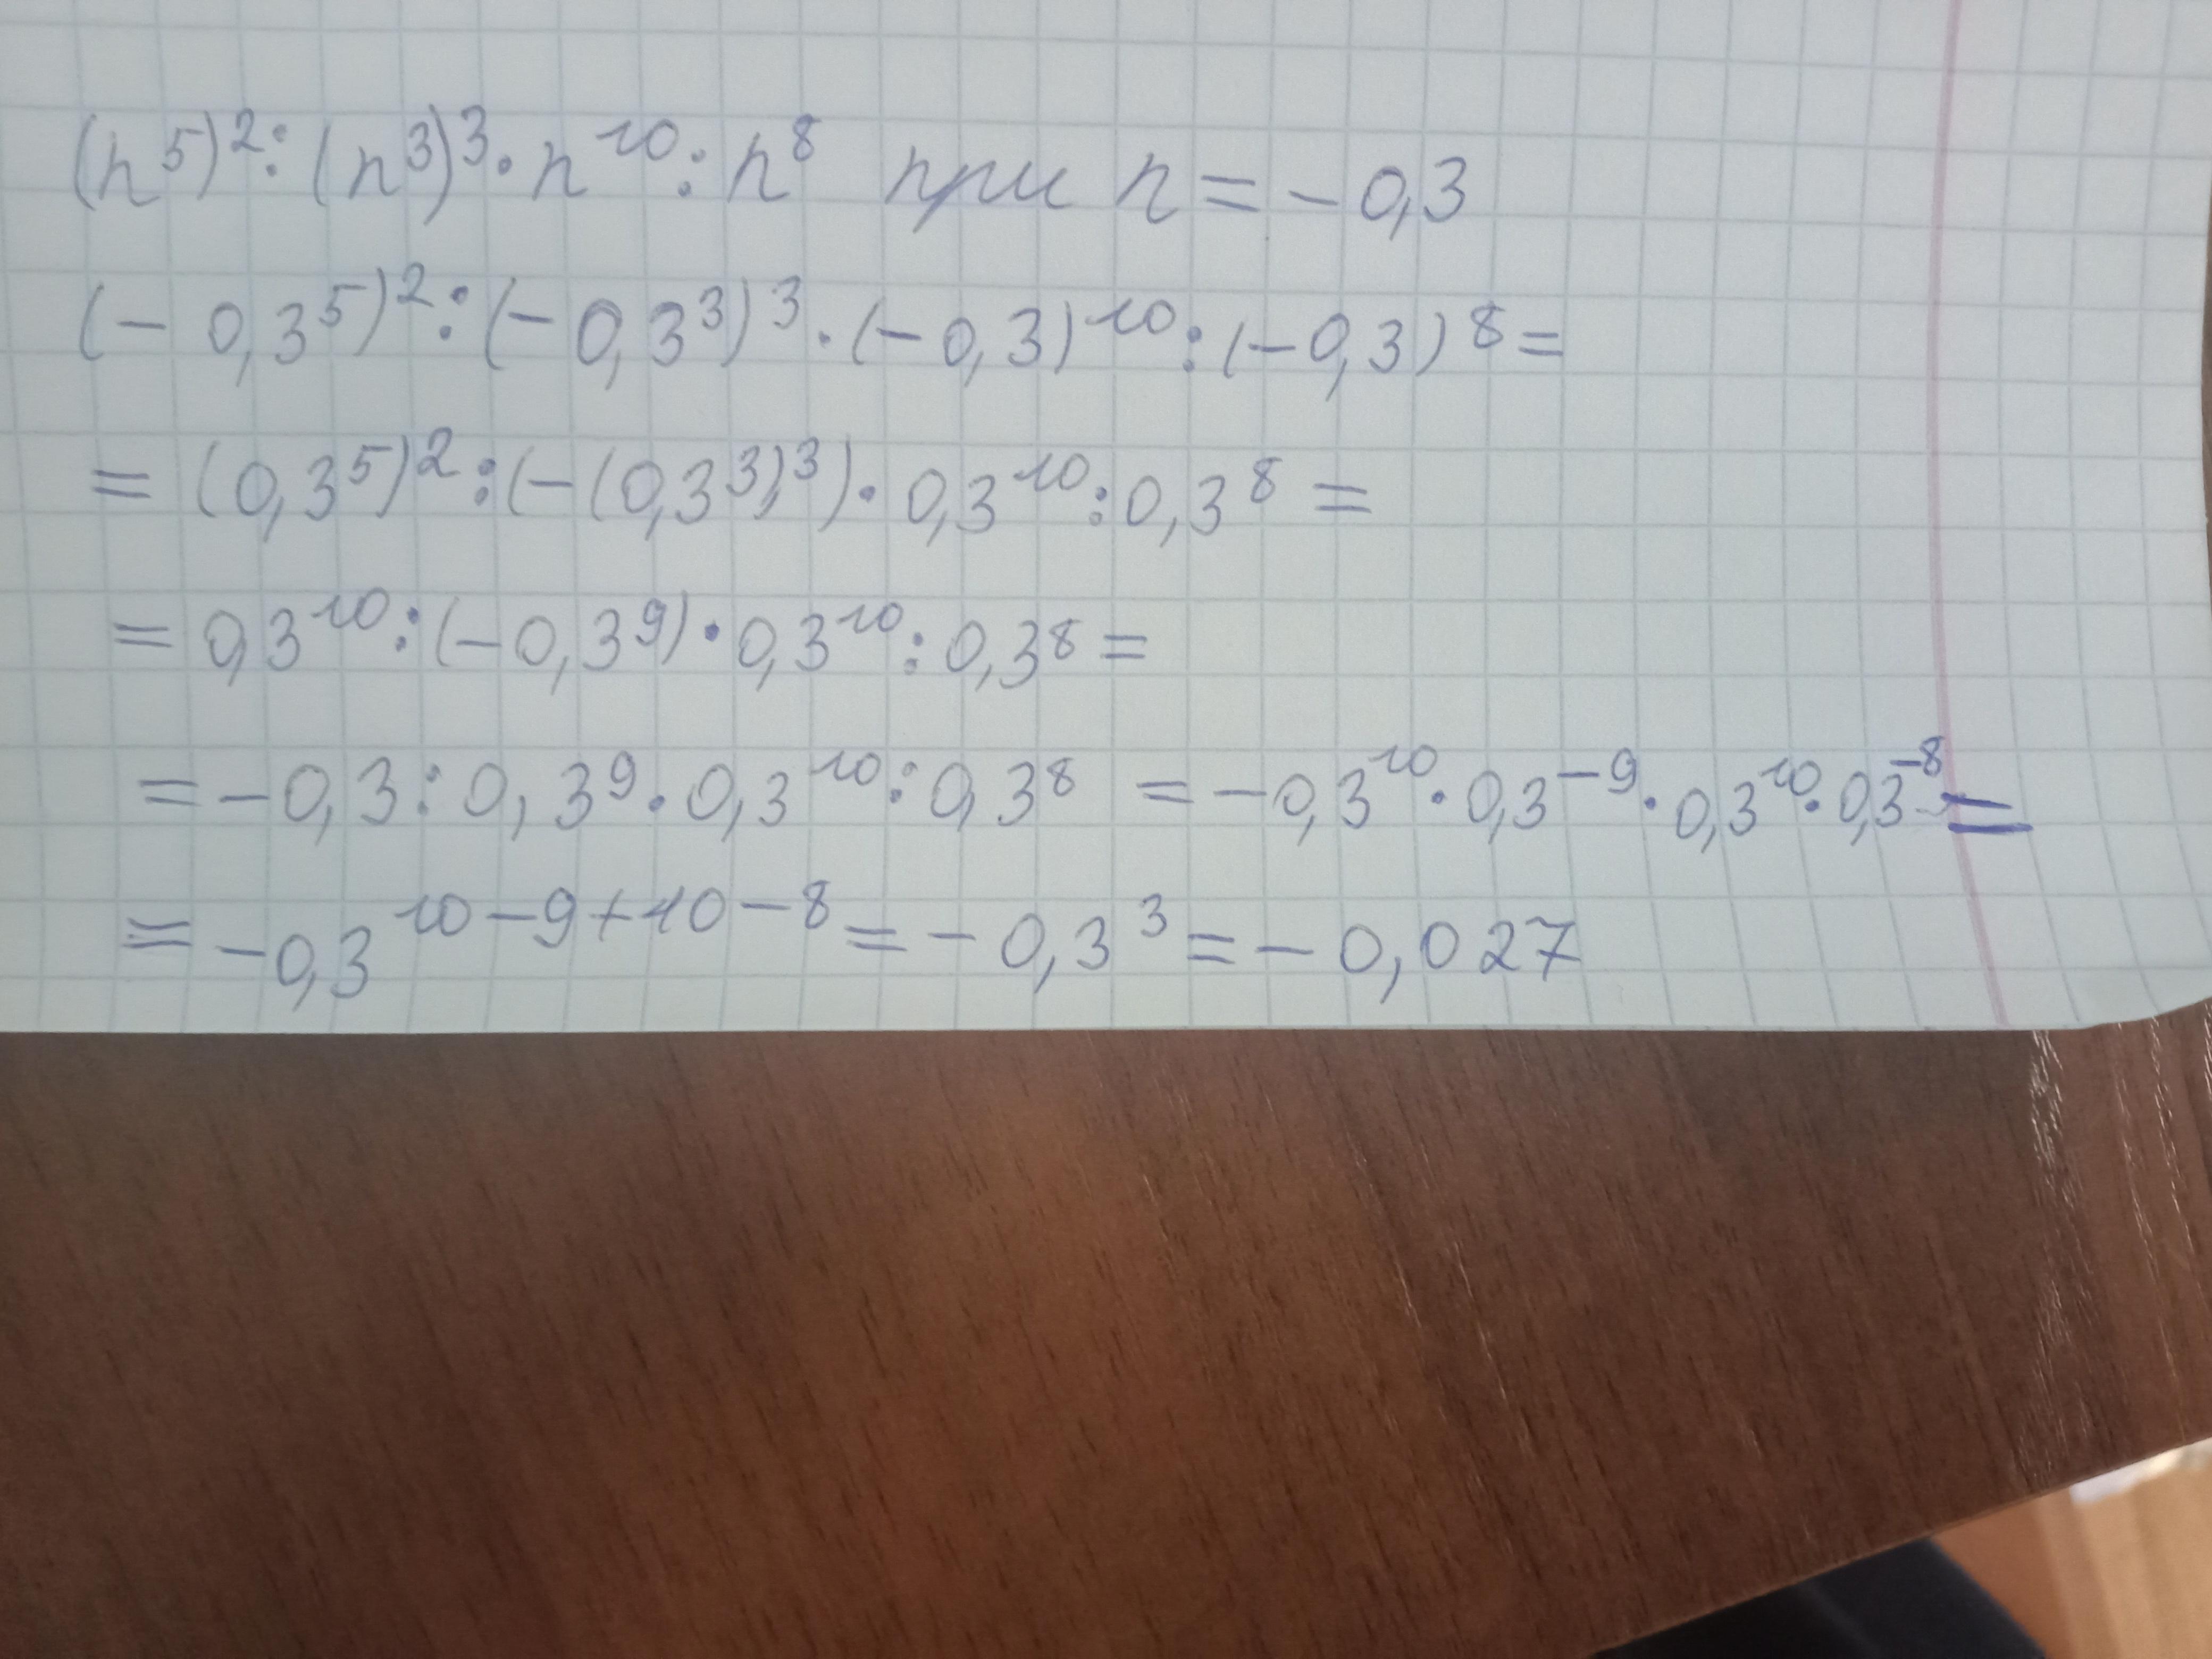 (n⁵)²:(n³)³·n¹⁰:n⁸ при n=-0,3
(-0,3⁵)²:(-0,3³)³·(-0,3)¹⁰:(-0,3)⁸=
=(0,3⁵)²:(-(0,3³)³)·0,3¹⁰:0,3⁸=
=0,3¹⁰:(-0,3⁹)·0,3¹⁰:0,3⁸=
=-0,3:0,3⁹·0,3¹⁰:0,3⁸=-0,3¹⁰·0,3⁻⁹·0,3¹⁰·0,3⁻⁸=
=-0,3¹⁰⁻⁹⁺¹⁰⁻⁸=-0,3³=-0,027